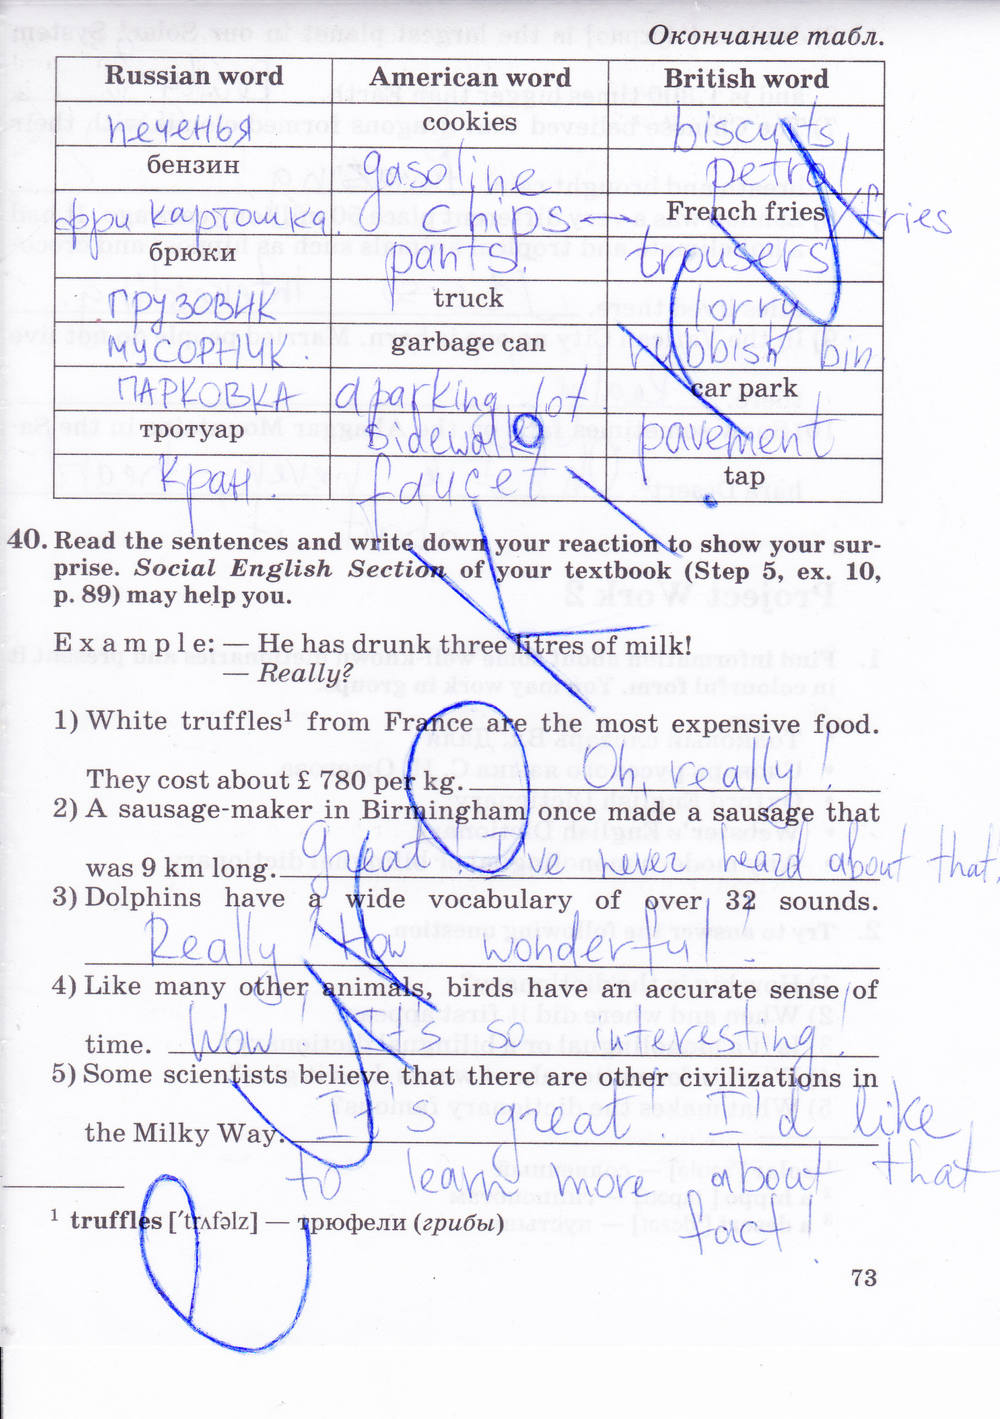 Окончание табл.
Russian word American word British word
печенья cookies biscuits
бензин gasoline petrol
фри картошка chips – French fries fries
брюки pants. trousers
грузовик truck lorry
мусорник. garbage can rubbish bin
ПАРКОВКА a parking lot. car park
тротуар sidewalk pavement
Кран. faucet tap
40. Read the sentences and write down your reaction to show your sur-
prise. Social English Section of your textbook (Step 5, ex. 10,
p. 89) may help you.
Example: — He has drunk three litres of milk!
— Really?
1) White truffles¹ from France are the most expensive food.
They cost about £ 780 per kg. Oh, really!
2) A sausage-maker in Birmingham once made a sausage that
was 9 km long. Great! I've never heard about that.
3) Dolphins have a wide vocabulary of over 32 sounds.
Really! How wonderful!
4) Like many other animals, birds have an accurate sense of
time. Wow! It's so interesting!
5) Some scientists believe that there are other civilizations in
the Milky Way. It's great. I'd like
to learn more about that
fact!
¹ truffles [ˈtrʌfəlz] — трюфели (грибы)
73